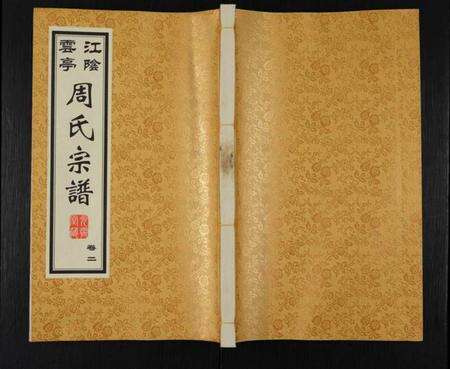 江陰
雲亭
周氏宗譜
卷二